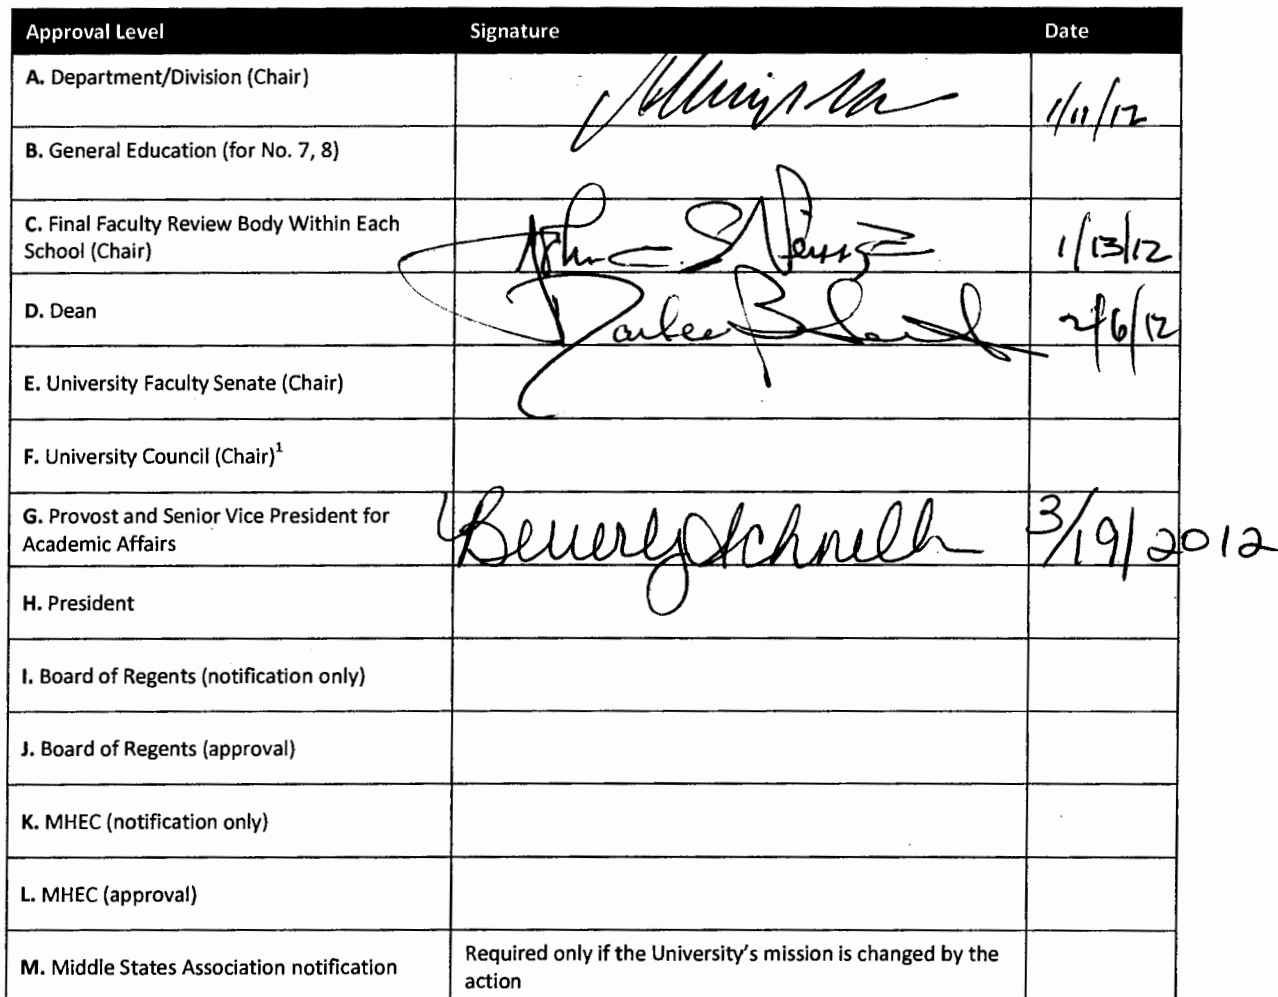 Approval Level Signature Date
A. Department/Division (Chair) 1/11/12
B. General Education (for No. 7, 8)
C. Final Faculty Review Body Within Each
School (Chair) 1/13/12
D. Dean 2/6/12
E. University Faculty Senate (Chair)
F. University Council (Chair)¹
G. Provost and Senior Vice President for
Academic Affairs Beverly Schnell 3/19/2012
H. President
I. Board of Regents (notification only)
J. Board of Regents (approval)
K. MHEC (notification only)
L. MHEC (approval)
M. Middle States Association notification Required only if the University's mission is changed by the
action